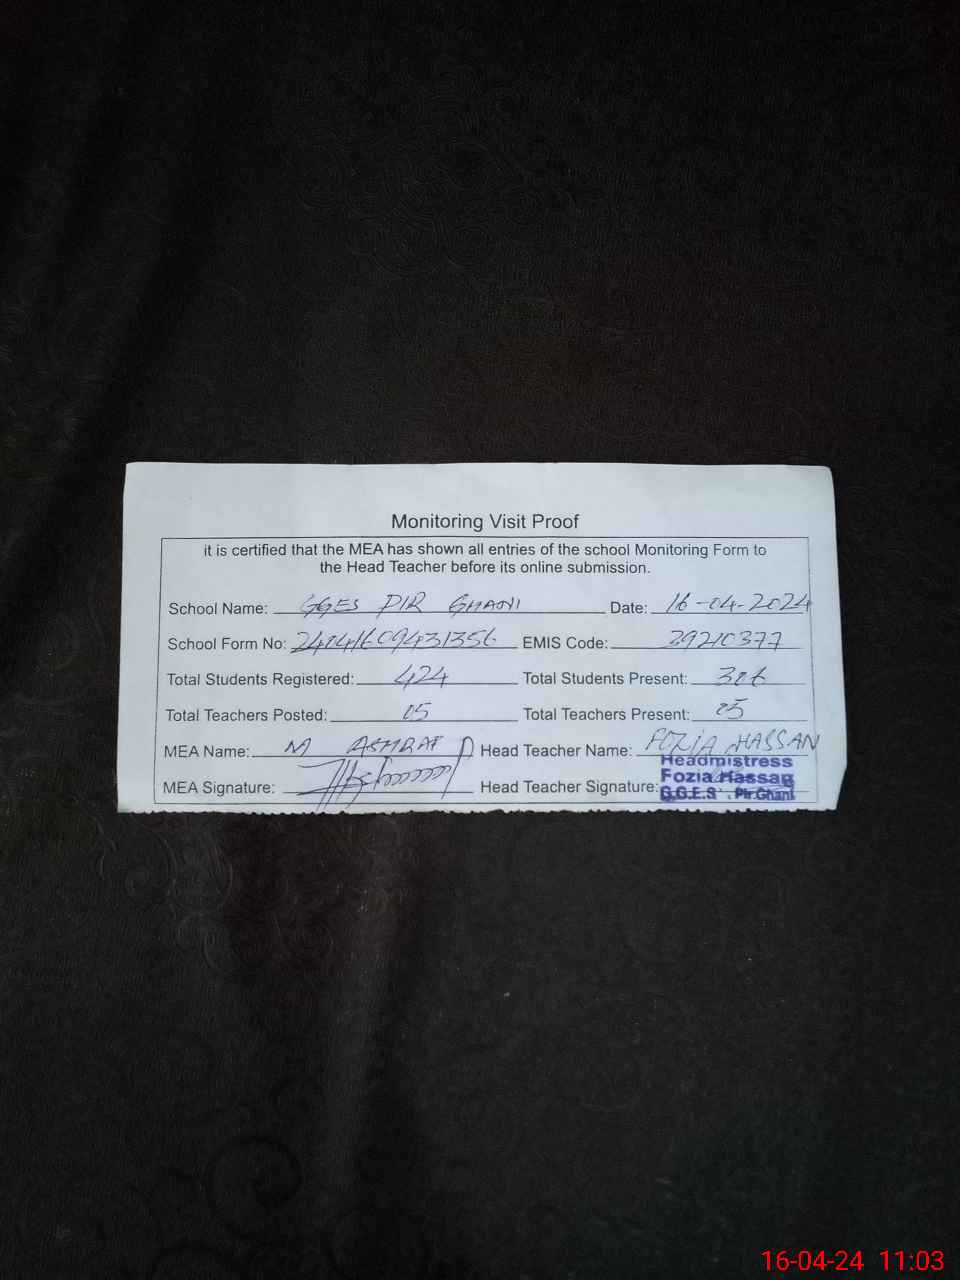 Monitoring Visit Proof
it is certified that the MEA has shown all entries of the school Monitoring Form to
the Head Teacher before its online submission.
School Name: GGES PIR GHANI Date: 16-04-2024
School Form No: EMIS Code: 39210377
Total Students Registered: 424 Total Students Present:
Total Teachers Posted: 05 Total Teachers Present: 05
MEA Name: M ASHRAF Head Teacher Name: FOZIA HASSAN
MEA Signature: Head Teacher Signature:
Headmistress
Fozia Hassan
G.G.E.S Pir Ghani
16-04-24 11:03